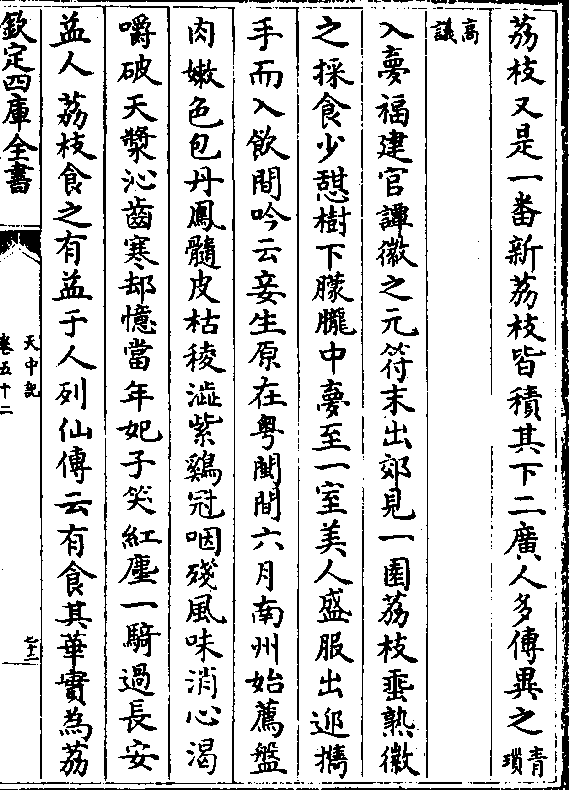 荔枝又是一番新荔枝皆積其下二廣人多傳異之青瑣
高議
入夢福建官譚徽之元符末出郊見一園荔枝垂熟徽
之採食少憇樹下朦朧中夢至一室美人盛服出迎攜
手而入飲間吟云妾生原在粤閩間六月南州始薦盤
肉嫩色包丹鳳髓皮枯稜澁紫鷄冠咽殘風味消心渴
嚼破天漿沁齒寒却憶當年妃子笑紅塵一騎過長安
益人 荔枝食之有益于人列仙傳云有食其華實為荔
欽定四庫全書
天中記
卷五十二
七十二